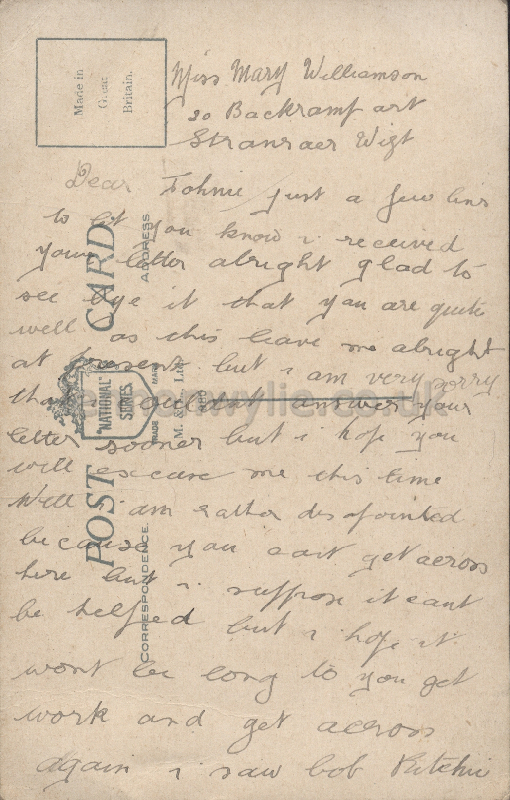 Miss Mary Williamson
20 Backramp art
Stranraer Wigt
Dear Johnie just a few lins
to let you know i received
your letter alright glad to
see bye it that you are quite
well as this leave me alright
at present but i am very sorry
that i answer your
letter sooner but i hope you
will excuse me this time
Well i am rather dis apointed
because you cant get across
here but i suppose it cant
be helped but i hope it
wont be long to you get
work and get across
again i saw bob Ritchie
Made in
Great
Britain.
POST CARD
CORRESPONDENCE.
ADDRESS
"NATIONAL"
SERIES
TRADE MARK
M. & L. Ltd.